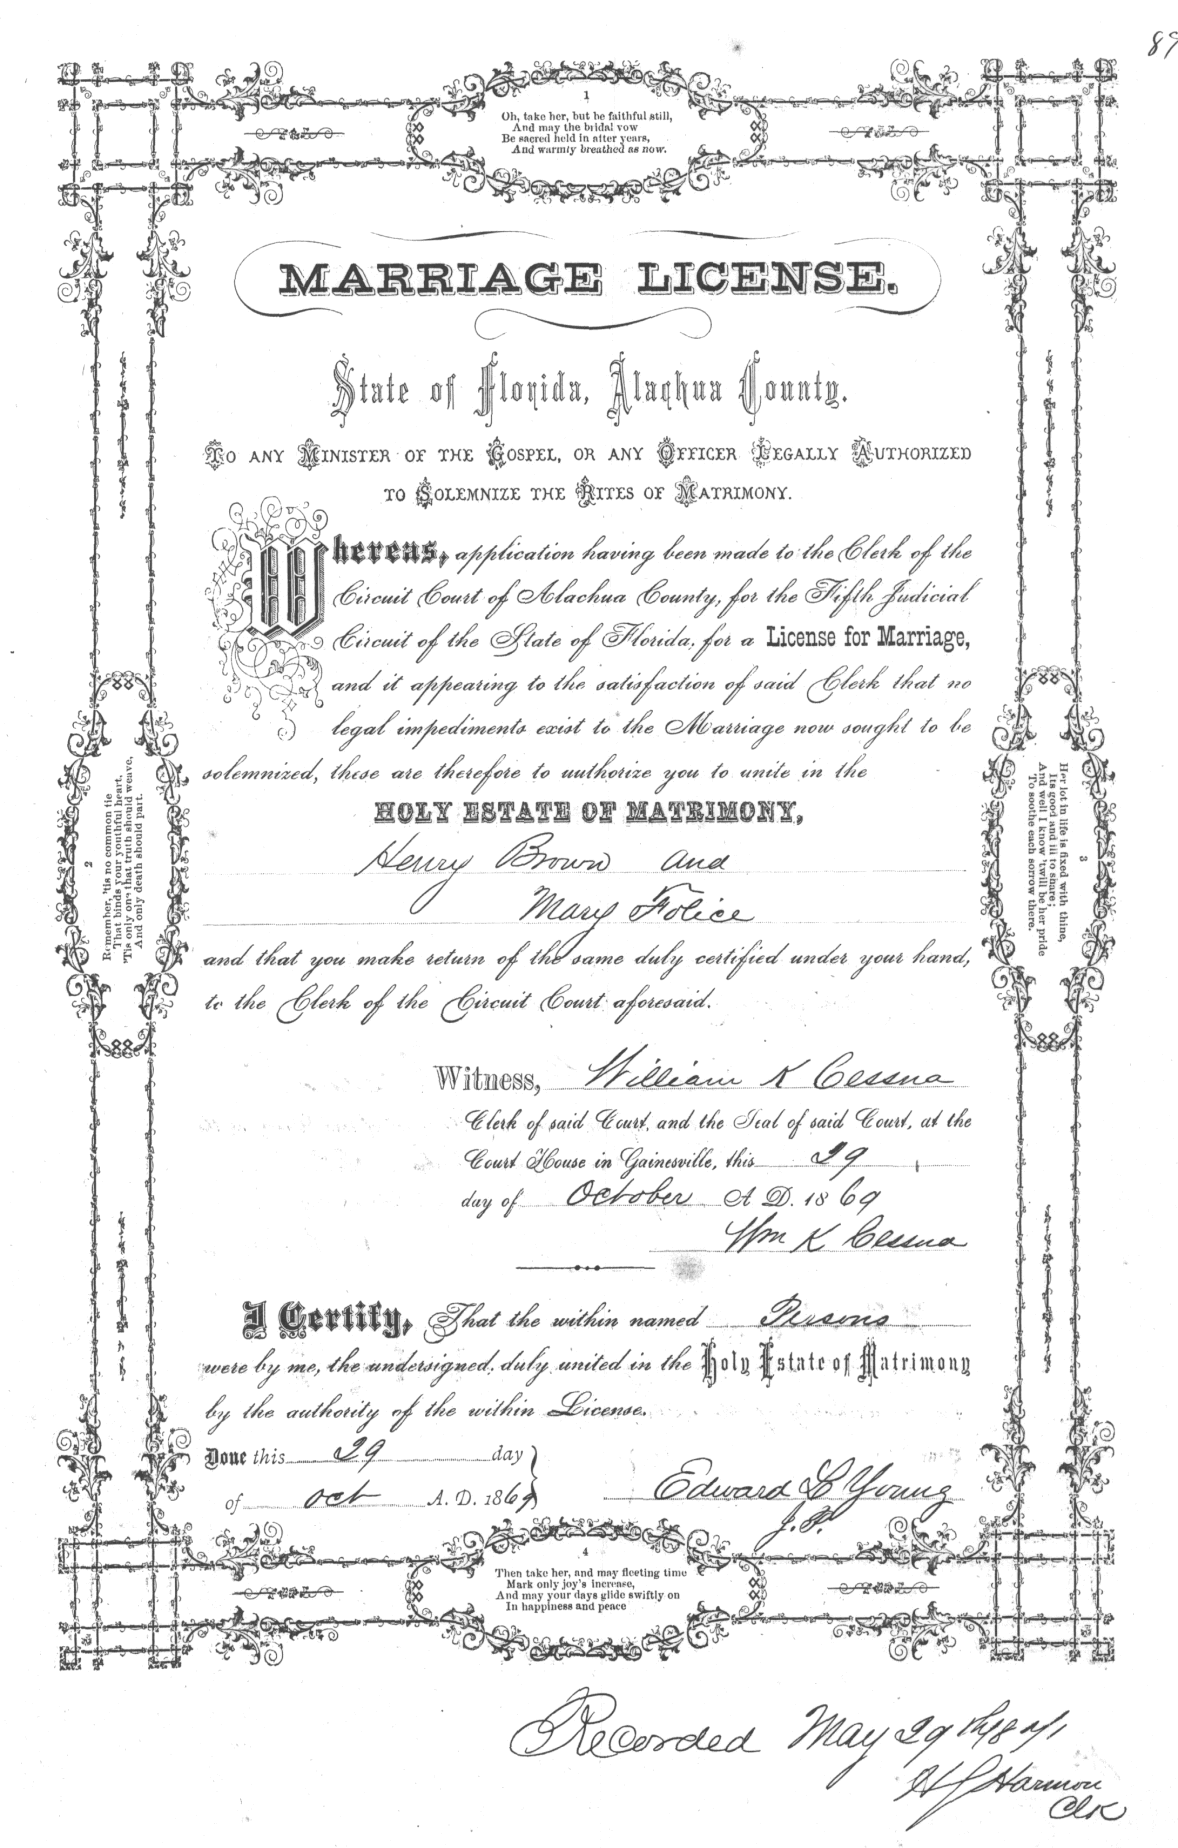 89
1
Oh, take her, but be faithful still,
And may the bridal vow
Be sacred held in after years,
And warmly breathed as now.
MARRIAGE LICENSE.
State of Florida, Alachua County.
TO ANY MINISTER OF THE GOSPEL, OR ANY OFFICER LEGALLY AUTHORIZED
TO SOLEMNIZE THE RITES OF MATRIMONY.
Whereas, application having been made to the Clerk of the
Circuit Court of Alachua County, for the Fifth Judicial
Circuit of the State of Florida, for a License for Marriage,
and it appearing to the satisfaction of said Clerk that no
legal impediments exist to the Marriage now sought to be
solemnized, these are therefore to authorize you to unite in the
HOLY ESTATE OF MATRIMONY,
Henry Brown and
Mary Folice
and that you make return of the same duly certified under your hand,
to the Clerk of the Circuit Court aforesaid.
2
Remember, 'tis no common tie
That binds your youthful heart,
'Tis only one that truth should weave,
And only death should part.
3
Her lot in life is fixed with thine,
Its good and ill to share;
And well I know 'twill be her pride
To soothe each sorrow there.
Witness, William K Cessna
Clerk of said Court, and the Seal of said Court, at the
Court House in Gainesville, this 29
day of October A D. 1869
Wm K Cessna
I Certify, That the within named Persons
were by me, the undersigned, duly united in the Holy Estate of Matrimony
by the authority of the within License.
Done this 29 day
of Oct A. D. 1869
Edward L Young
J. P.
4
Then take her, and may fleeting time
Mark only joy's increase,
And may your days glide swiftly on
In happiness and peace
Recorded May 29th 1871
H J Harmon
Clk